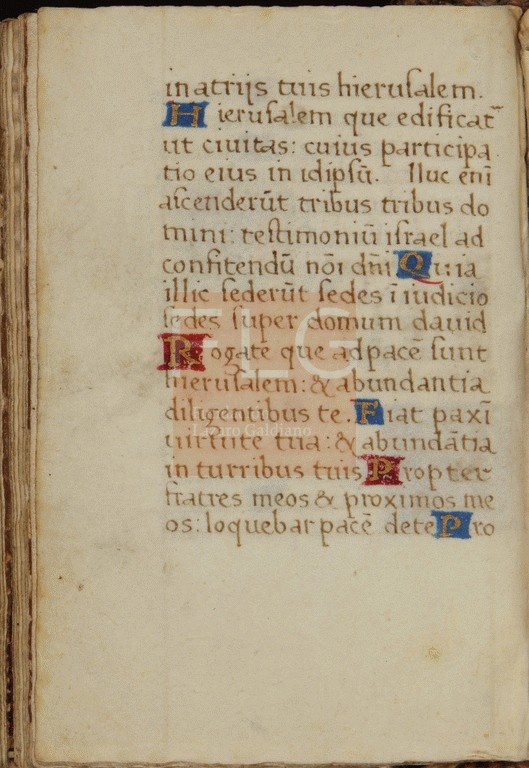 in atrijs tuis hieruſalem.
Hieruſalem que edificat᷉
ut ciuitas: cuius participa
tio eius in idipſū. Iluc enī
aſcenderūt tribus tribus do
mini: teſtimoniū iſrael ad
confitendū nōi dn̄i Quia
illic ſederūt ſedes ī iudicio
ſedes ſuper domum dauid
Rogate que ad pacē ſunt
hieruſalem: & abundantia
diligentibus te. Fiat pax ī
uirtute tua: & abundātia
in turribus tuis Propter
fratres meos & proximos me
os: loquebar pacē de te Pro
FLG
Lázaro Galdiano